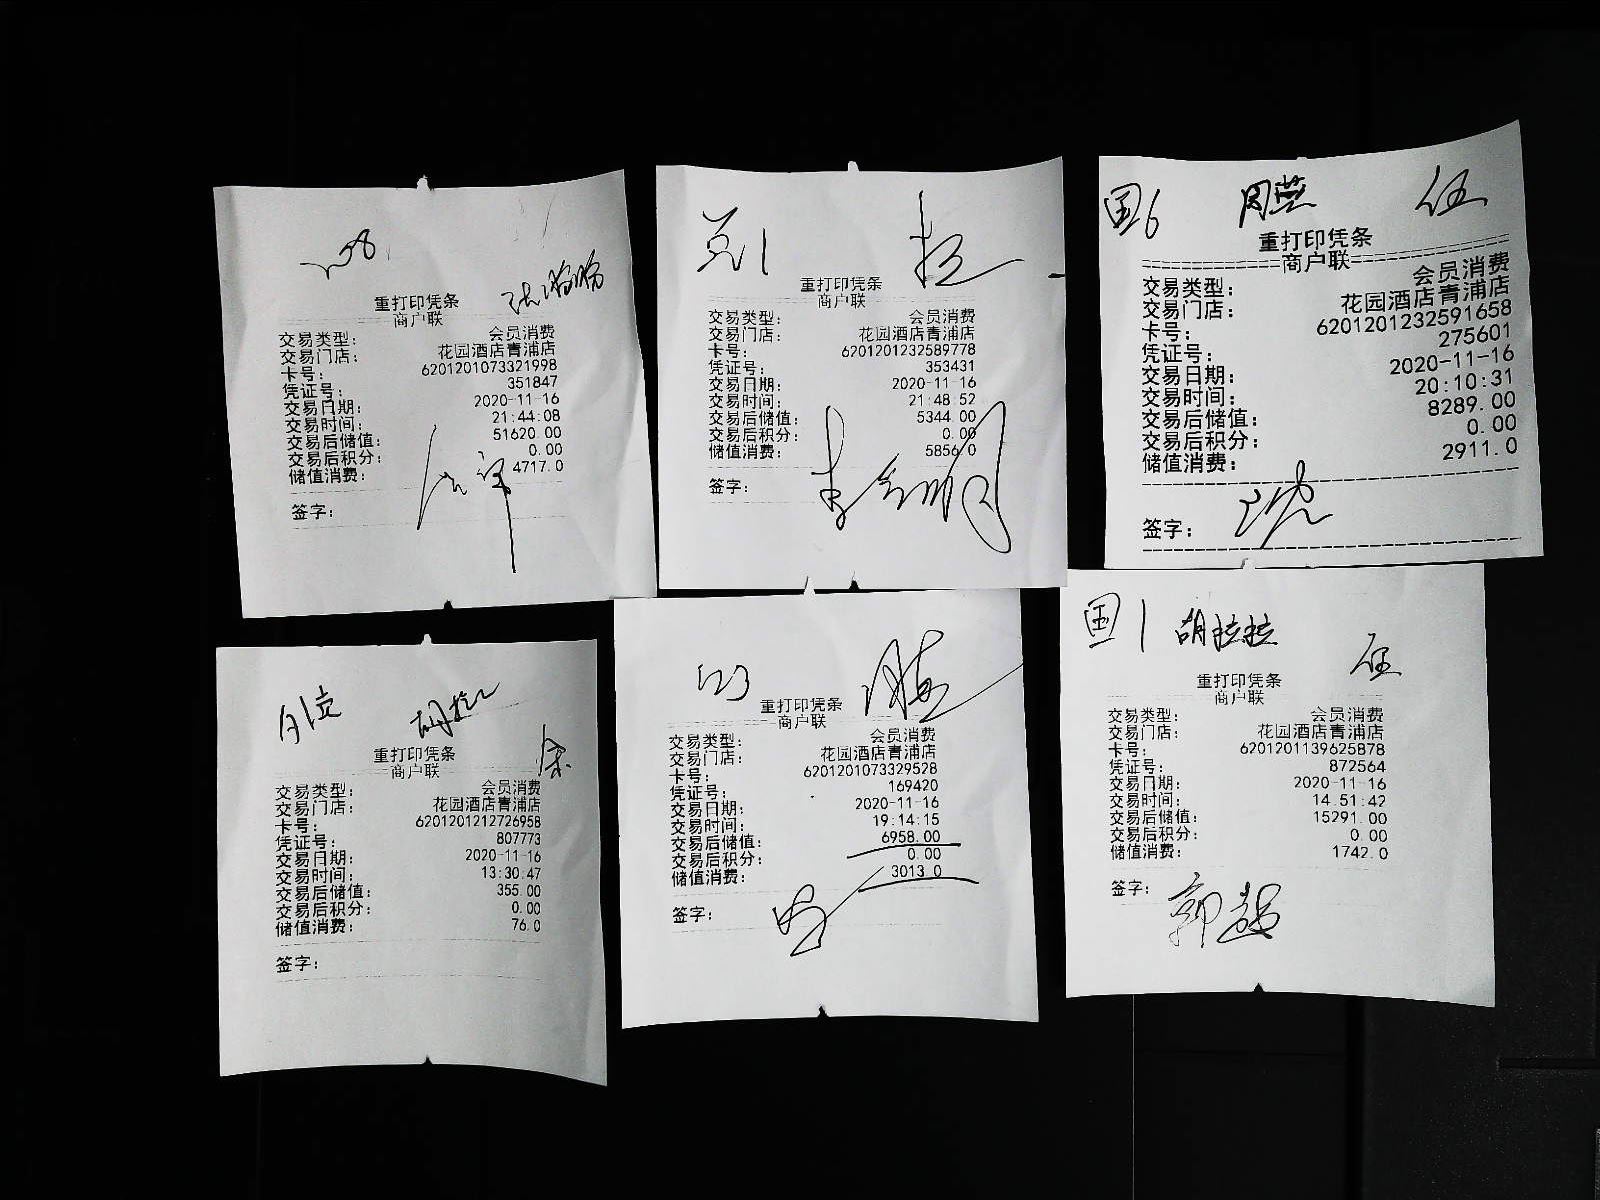 重打印凭条
商户联
交易类型: 会员消费
交易门店: 花园酒店青浦店
卡号: 6201201073321998
凭证号: 351847
交易日期: 2020-11-16
交易时间: 21:44:08
交易后储值: 51620.00
交易后积分: 0.00
储值消费: 4717.0
签字:
1
重打印凭条
商户联
交易类型: 会员消费
交易门店: 花园酒店青浦店
卡号: 6201201232589778
凭证号: 353431
交易日期: 2020-11-16
交易时间: 21:48:52
交易后储值: 5344.00
交易后积分: 0.00
储值消费: 5856.0
签字:
国6 周燕 伍
重打印凭条
商户联
交易类型: 会员消费
交易门店: 花园酒店青浦店
卡号: 6201201232591658
凭证号: 275601
交易日期: 2020-11-16
交易时间: 20:10:31
交易后储值: 8289.00
交易后积分: 0.00
储值消费: 2911.0
签字: 沈
重打印凭条
商户联
交易类型: 会员消费
交易门店: 花园酒店青浦店
卡号: 6201201212726958
凭证号: 807773
交易日期: 2020-11-16
交易时间: 13:30:47
交易后储值: 355.00
交易后积分: 0.00
储值消费: 76.0
签字:
重打印凭条
商户联
交易类型: 会员消费
交易门店: 花园酒店青浦店
卡号: 6201201073329528
凭证号: 169420
交易日期: 2020-11-16
交易时间: 19:14:15
交易后储值: 6958.00
交易后积分: 0.00
储值消费: 3013.0
签字:
国1 胡拉拉 伍
重打印凭条
商户联
交易类型: 会员消费
交易门店: 花园酒店青浦店
卡号: 6201201139625878
凭证号: 872564
交易日期: 2020-11-16
交易时间: 14:51:42
交易后储值: 15291.00
交易后积分: 0.00
储值消费: 1742.0
签字: 郭超